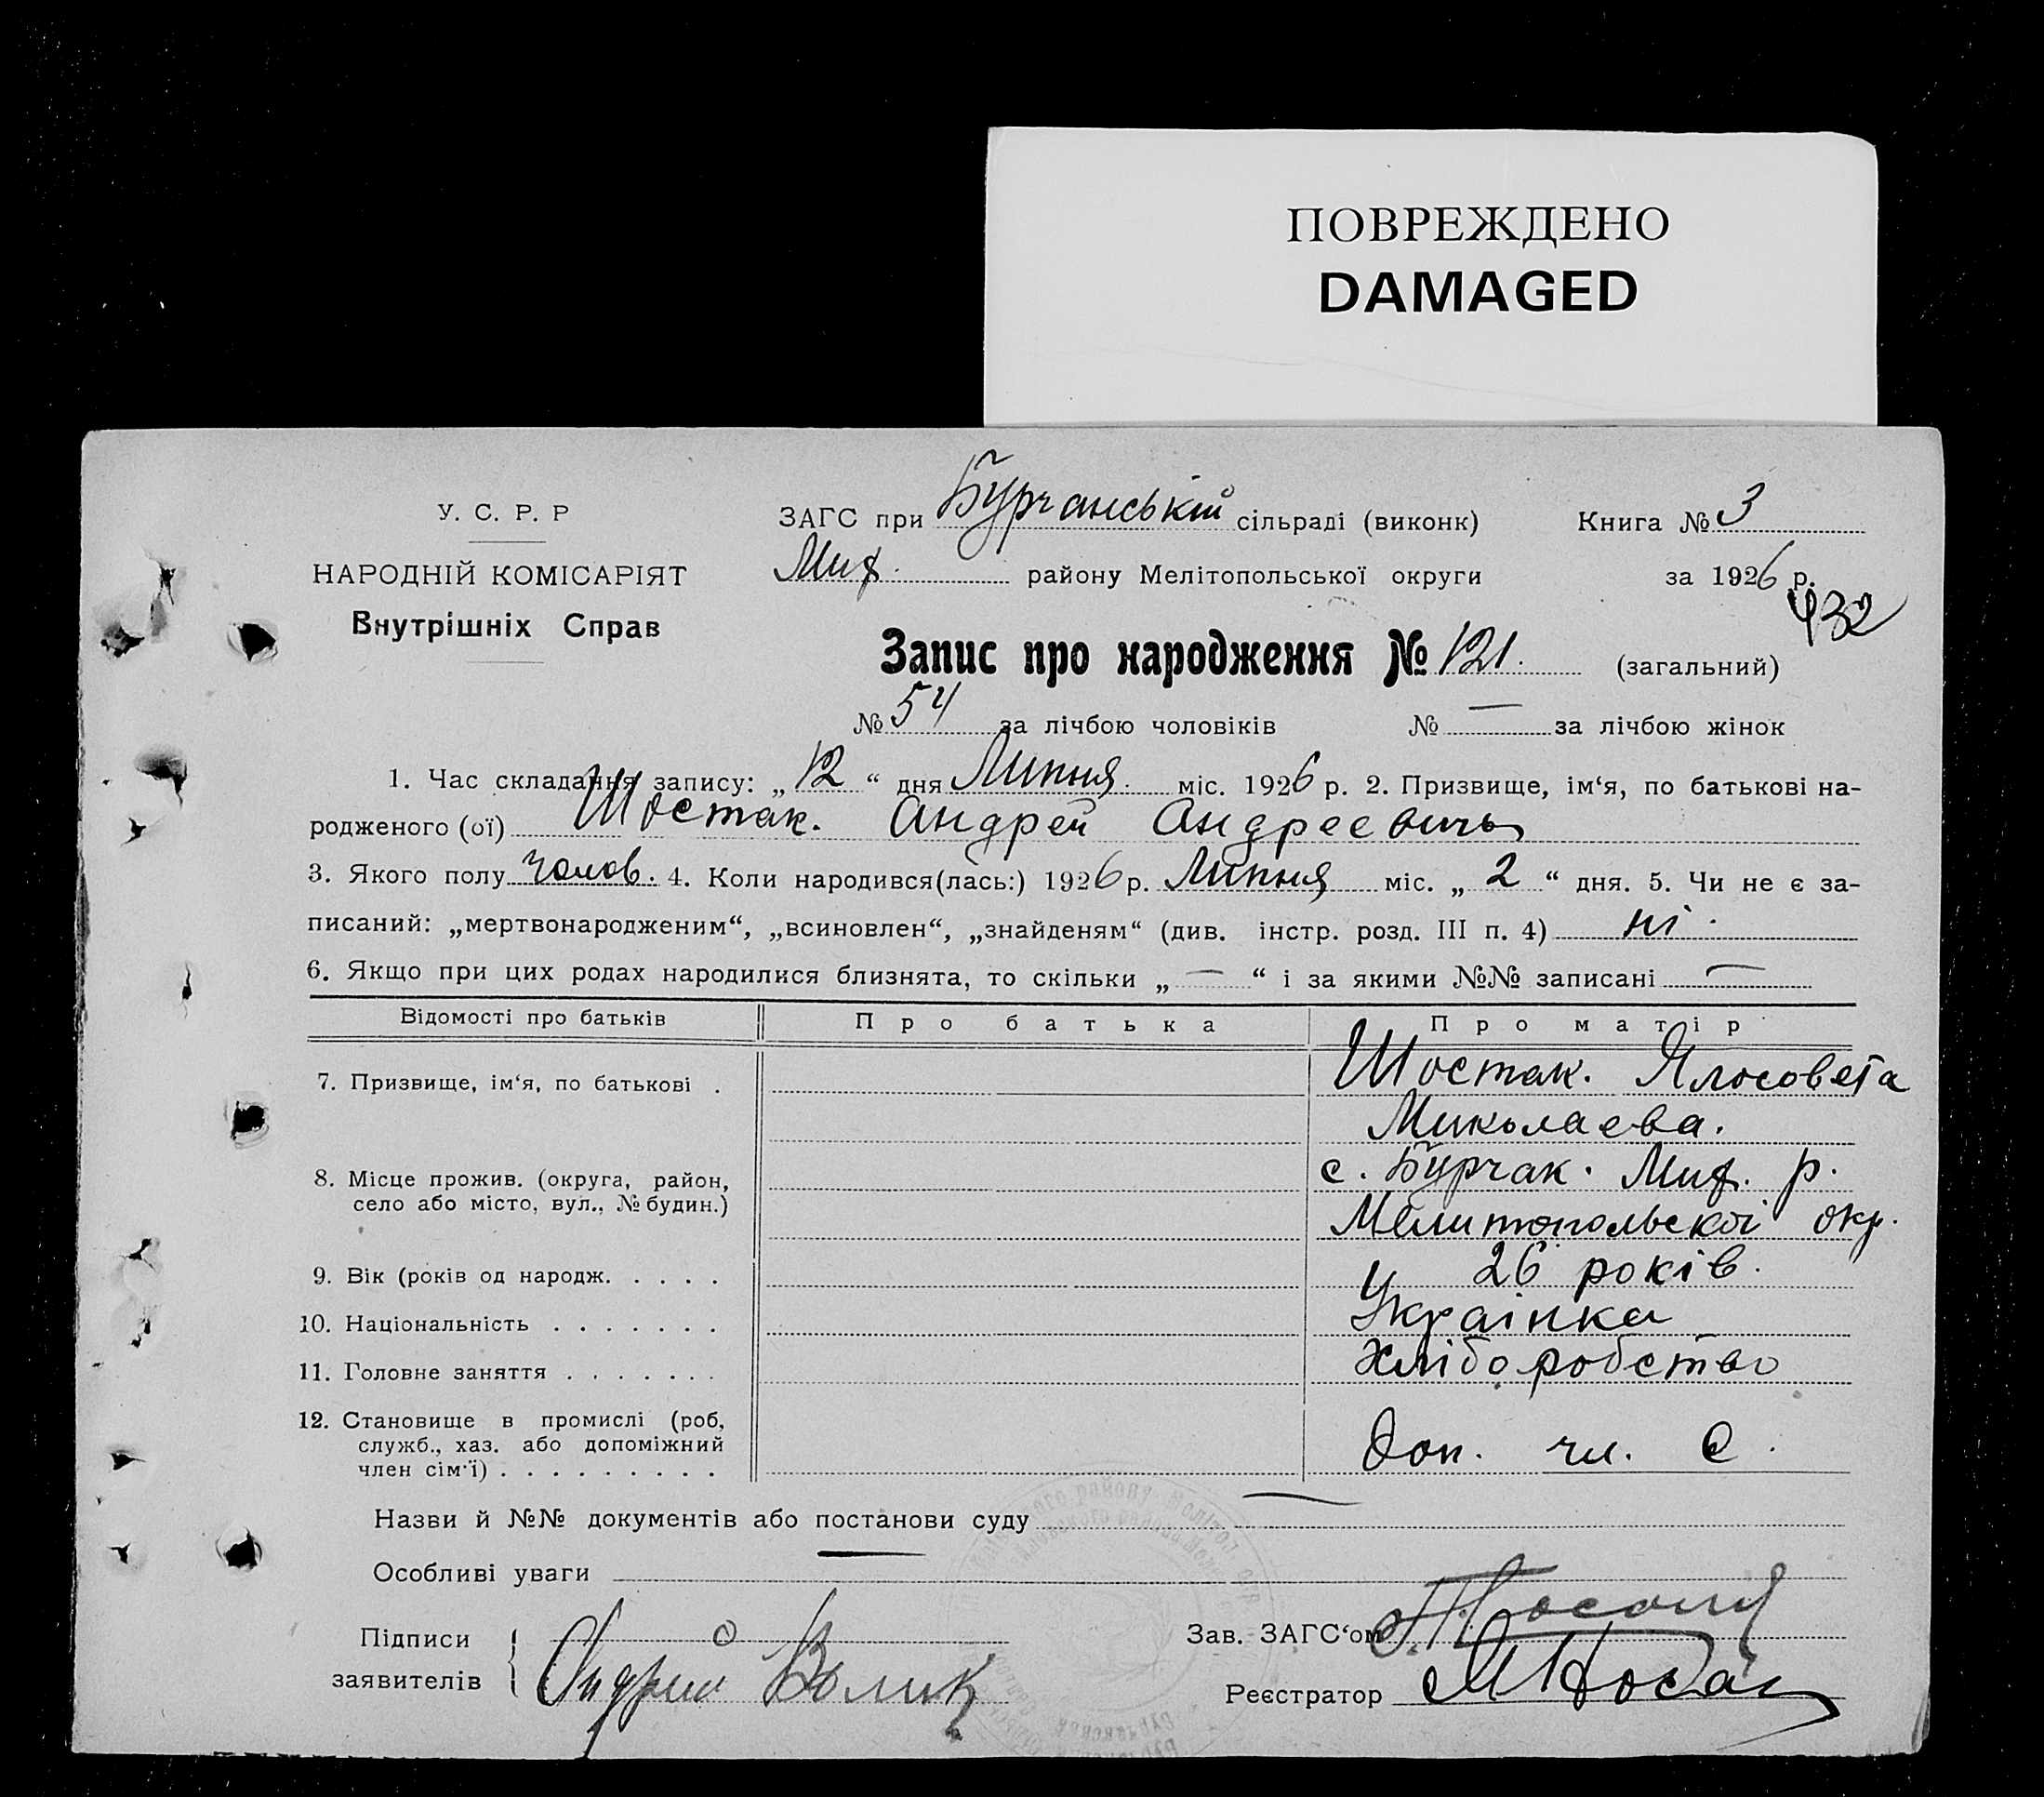 ПОВРЕЖДЕНО
DAMAGED
У. С. Р. Р
НАРОДНІЙ КОМІСАРІЯТ
Внутрішніх Справ
ЗАГС при Бурчанській сільраді (виконк) Книга № 3
Мих. району Мелітопольської округи за 1926 р.
432
Запис про народження № 121. (загальний)
№ 54 за лічбою чоловіків № — за лічбою жінок
1. Час складання запису: „12“ дня Липня. міс. 1926 р. 2. Призвище, ім‘я, по батькові на-
родженого (ої) Шостак. Андрей Андреевичь
3. Якого полу чолов. 4. Коли народився(лась:) 1926 р. Липня міс. „2“ дня. 5. Чи не є за-
писаний: „мертвонародженим“, „всиновлен“, „знайденям“ (див. інстр. розд. III п. 4) ні.
6. Якщо при цих родах народилися близнята, то скільки „—“ і за якими №№ записані —
Відомості про батьків Про батька Про матір
7. Призвище, ім‘я, по батькові . Шостак. Ялосовета
Миколаева.
8. Місце прожив. (округа, район, с. Бурчак. Мих. р.
село або місто, вул., № будин.) Мелитопольскої окр.
9. Вік (років од народж. . . . . 26 років.
10. Національність . . . . . . . Украінка
11. Головне заняття . . . . . . . Хліборобство
12. Становище в промислі (роб,
служб., хаз. або допоміжний доп. чл. С.
член сім‘ї) . . . . . . . . .
Назви й №№ документів або постанови суду —
Особливі уваги —
Підписи
заявителів Андрий Волик
Зав. ЗАГС‘ом
Реєстратор